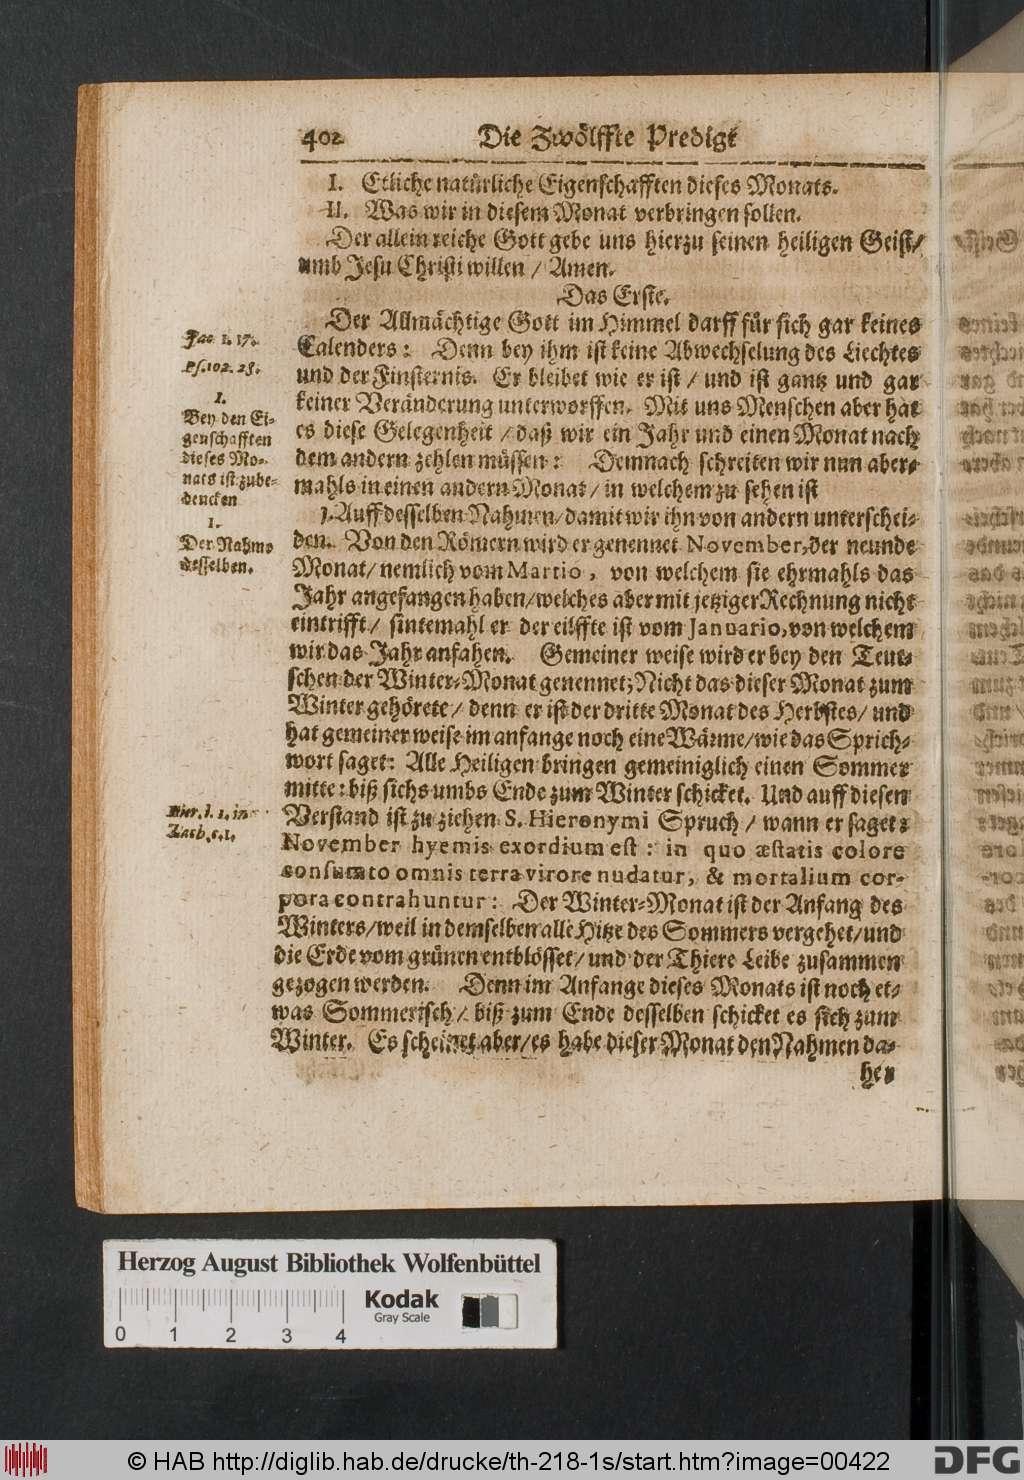 402 Die Zwölffte Predigt
I. Etliche natürliche Eigenschafften dieses Monats.
II. Was wir in diesem Monat verbringen sollen.
Der allein reiche Gott gebe uns hierzu seinen heiligen Geist/
umb Jesu Christi willen / Amen.
Das Erste.
Der Allmächtige Gott im Himmel darff für sich gar keines
Calenders: Denn bey ihm ist keine Abwechselung des Liechtes
und der Finsternis. Er bleibet wie er ist / und ist gantz und gar
keiner Veränderung unterworffen. Mit uns Menschen aber hat
es diese Gelegenheit / daß wir ein Jahr und einen Monat nach
dem andern zehlen müssen: Demnach schreiten wir nun aber-
mahls in einen andern Monat / in welchem zu sehen ist
1. Auff desselben Nahmen/ damit wir ihn von andern unterschei-
den. Von den Römern wird er genennet November, der neunde
Monat/ nemlich vom Martio, von welchem sie ehrmahls das
Jahr angefangen haben/ welches aber mit jetziger Rechnung nicht
eintrifft/ sintemahl er der eilffte ist vom Januario, von welchem
wir das Jahr anfahen. Gemeiner weise wird er bey den Teut-
schen der Winter-Monat genennet; Nicht das dieser Monat zum
Winter gehörete/ denn er ist der dritte Monat des Herbstes/ und
hat gemeiner weise im anfange noch eine Wärme/ wie das Sprich-
wort saget: Alle Heiligen bringen gemeiniglich einen Sommer
mitte: biß sichs umbs Ende zum Winter schicket. Und auff diesen
Verstand ist zu ziehen S. Hieronymi Spruch / wann er saget:
November hyemis exordium est: in quo æstatis colore
consumto omnis terra virore nudatur, & mortalium cor-
pora contrahuntur: Der Winter-Monat ist der Anfang des
Winters/ weil in demselben alle Hitze des Sommers vergehet/ und
die Erde vom grünen entblösset/ und der Thiere Leibe zusammen
gezogen werden. Denn im Anfange dieses Monats ist noch et-
was Sommerisch/ biß zum Ende desselben schicket es sich zum
Winter. Es scheinet aber/ es habe dieser Monat den Nahmen da-
her
Jac. 1. 17.
Ps. 102. 28.
I.
Bey den Ei-
genschafften
dieses Mo-
nats ist zube-
dencken
1.
Der Nahme
desselben.
Hier. l. 1. in
Zach. c. 1.
Herzog August Bibliothek Wolfenbüttel
Kodak
Gray Scale
0 1 2 3 4
© HAB http://diglib.hab.de/drucke/th-218-1s/start.htm?image=00422
DFG